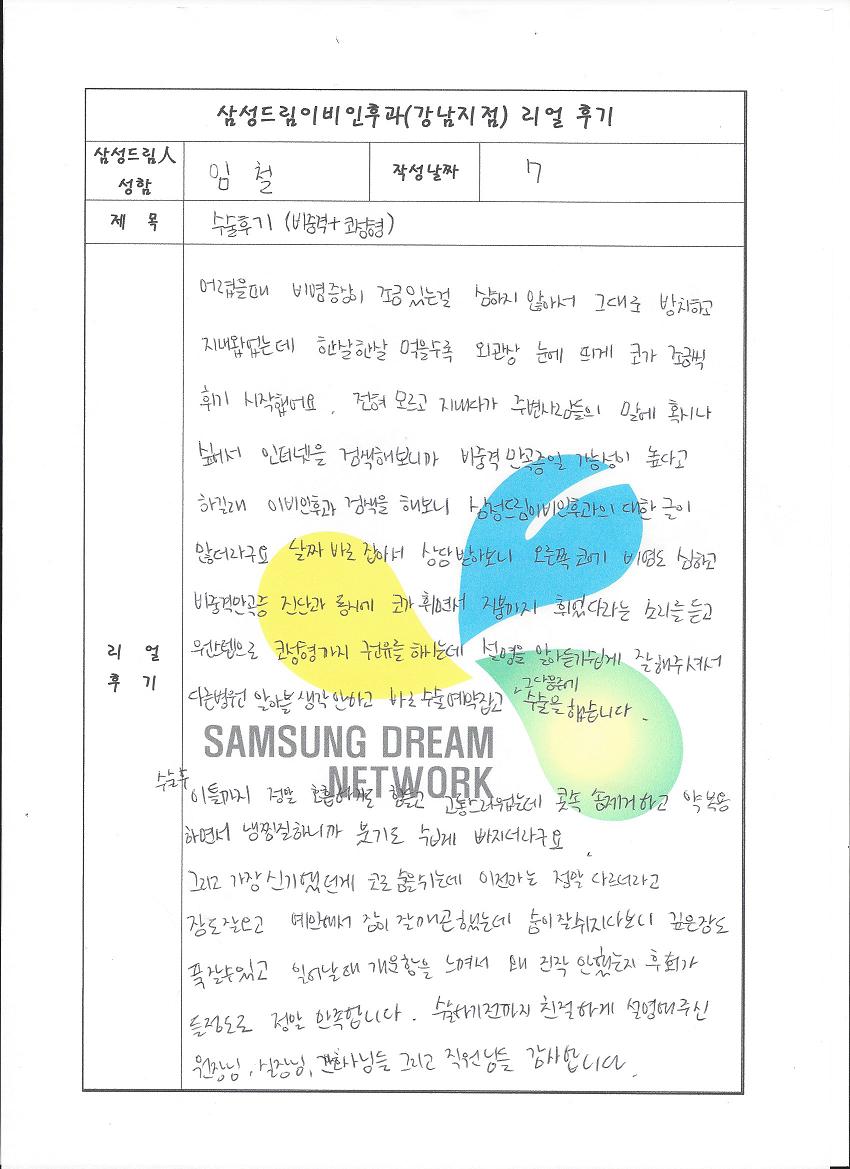 삼성드림이비인후과(강남지점) 리얼 후기
삼성드림人 성함
임 철
작성날짜
7
제 목
수술후기 (비중격+코성형)
리 얼 후 기
어렸을때 비염증상이 조금있는걸 심하지 않아서 그대로 방치하고
지내왔었는데 한살한살 먹을수록 외관상 눈에 띄게 코가 조금씩
휘기 시작했어요. 전혀 모르고 지내다가 주변사람들의 말에 혹시나
싶어서 인터넷을 검색해보니까 비중격 만곡증일 가능성이 높다고
하길래 이비인후과 검색을 해보니 삼성드림이비인후과의 대한 글이
많더라구요 날짜 바로 잡아서 상담받아보니 오른쪽 코에 비염도 심하고
비중격만곡증 진단과 동시에 코가 휘면서 지붕까지 휘었다라는 소리를 듣고
코성형까지 권유를 하시는데 설명을 알아듣기쉽게 잘해주셔서
다른병원 알아볼 생각안하고 바로 수술예약잡고 그다음주에 수술을 했습니다.
SAMSUNG DREAM
NETWORK
수술후 이틀까지 정말 호흡하기도 힘들고 고통스러웠는데 콧속 솜제거하고 약 복용
하면서 냉찜질하니까 붓기도 쉽게 빠지더라구요
그리고 가장 신기했던게 코로 숨을쉬는데 이전과는 정말 다르더라고
잠도잘오고 예민해서 잠이 잘깨곤 했는데 숨이잘쉬지다보니 깊은잠도
푹잘수있고 일어날때 개운함을 느껴서 왜 진작 안했는지 후회가
들정도로 정말 만족합니다. 수술하기전까지 친절하게 설명해주신
원장님, 실장님, 간호사님들 그리고 직원님들 감사합니다.